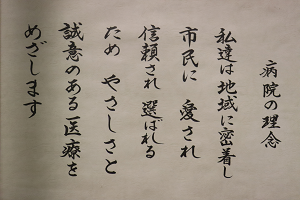 病院の理念
私達は地域に密着し
市民に 愛され
信頼され 選ばれる
ため やさしさと
誠意のある医療を
めざします